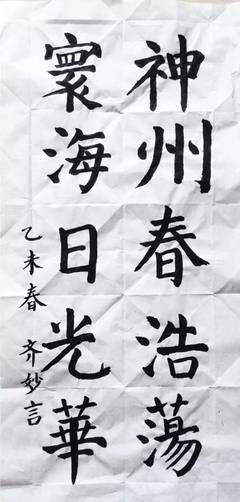 神州春浩蕩
寰海日光華
乙未春 齐妙言